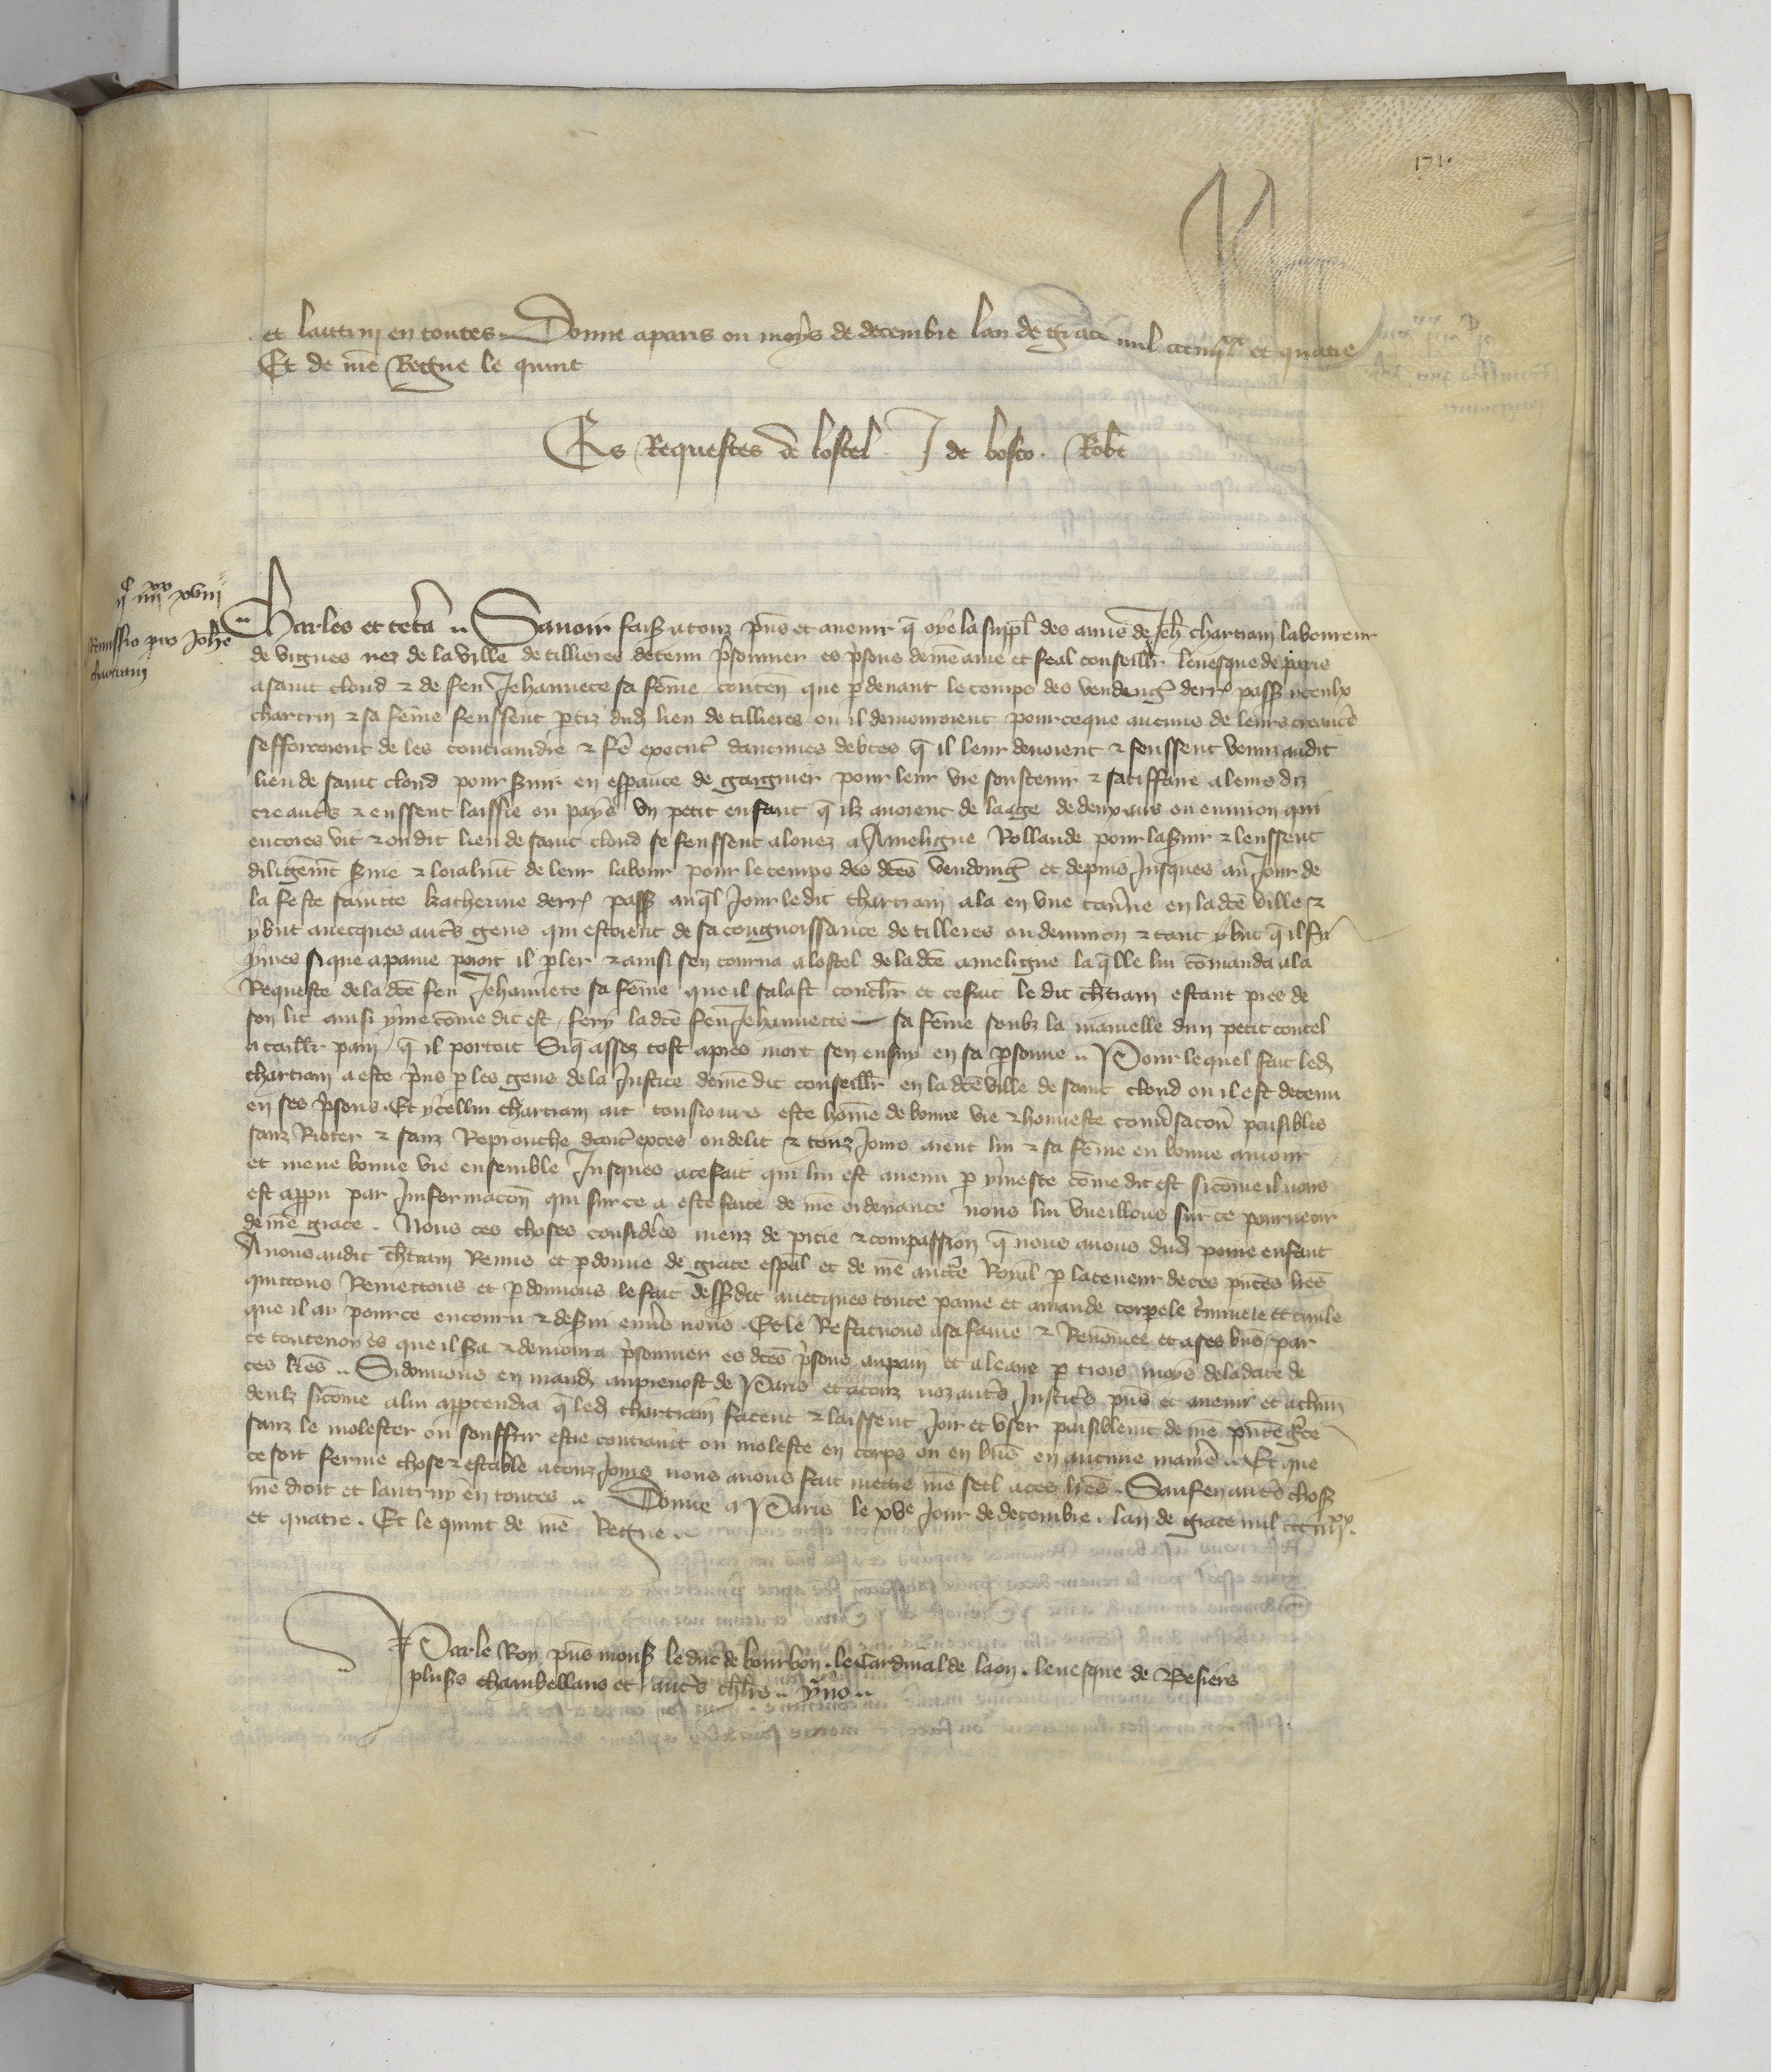 171.
et lautruy en toutes. Donne a paris ou moys de decembre lan de grace mil ccciiijxx et quatre
Et de nre Regne le quint
Es Requestes de lostel. J de bosco. Robt
ijc iiijxx xviij
Remissio pro Johe
chartrain
Charles et cetera. Savoir faisons a touz pns et avenir q oye la suppl des amis de Jeh chartrain laboureur
de vignes nez de la ville de tillieres detenu prisonnier es prisons de nre ame et feal conseillr levesque de paris
a saint cloud & de feu Jehannete sa feme conten que par devant le temps des vendeng derr pass iceulx
chartrin & sa feme feussent ptiz dud lieu de tillieres ou il demouroient pour ce que aucuns de leurs creanc
sefforcoient de les contraindre & fe execut daucunes debtes q il leur devoient & feussent venuz audit
lieu de saint cloud pour servir en esperance de gaigner pour leur vie soustenir & satiffaire a leurs diz
creanciers & eussent laissie ou pays un petit enfant q ilz avoient de laage de deux ans ou environ qui
encores vit & ou dit lieu de saint cloud se feussent alouez a Ameligne Rollande pour la servir & leussent
diligemt servie & loialmt de leur labour pour le temps des dces vendeng et depuis Jusques au Jour de
la feste saincte katherine derr pass auql Jour le dit chartrain ala en une taverne en la dce ville &
y but avecques autres gens qui estoient de sa congnoissance de tilleres ou denviron & tant y but q il fu
yvres si que a paine povoit il pler & ainsi sen tourna a lostel de la dce ameligne la qlle lui comanda a la
Requeste de la dce feu Jehannete sa feme que il salast couchr et ce fait le dit chrtrain estant pres de
son lit ainsi yvre come dit est fery la dce feu Jehannette sa feme soubz la mamelle dun petit coutel
a taillr pain q il portoit Si q assez tost apres mort sen ensuy en sa psonne. Pour lequel fait led
chartrain a este prins p les gens de la Justice de nre dit conseillr en la dce ville de saint cloud ou il est detenu
en ses prisons. Et ycellui chartrain ait tousiours este home de bonne vie & honneste conversacion paisibles
sanz Rioter & sanz Reprouche dautre exces ou delit & touz Jours aient lui & sa feme en bonne amour
et mene bonne vie ensemble Jusques a ce fait qui lui est avenu p yvresce come dit est si come il nous
est appu par Informacion qui sur ce a este faite de nre ordenance nous lui vueillons sur ce pourveoir
de nre grace. Nous ces choses considerees meuz de pitie & compassion q nous avons dud povre enfant
Avons audit chrtrain Remis et pdonne de grace espal et de nre auctte Royal p la teneur de ces pntes lres
quittons Remettons et pdonnons le fait dessusdit avecques toute paine et amande corporele criminele et civile
que il ay pour ce encouru & desservi envers nous. Et le Restituons a sa fame & Renomee et a ses bns par
ce toutevoies que il sera & demoura prisonnier es dces prisons au pain et a leaue p trois moys de la date de
ces lres. Si donnons en mand au prevost de Paris et a touz noz autres Justic pns et avenir et a chun
deulx si come a lui appendra q led chartrain facent & laissent Joir et user paisiblemt de nre pnte gce
sanz le molester ou souffrir estre contraint ou moleste en corps ou en bns en aucune maniere. Et que
ce soit ferme chose & estable a touz Jours nous avons fait mettre nre seel a ces lres. Sauf en autres choses
nre droit et lautruy en toutes. Donne a Paris le xve Jour de decembre. lan de grace mil ccciiijxx
et quatre. Et le quint de nre Regne
Par le Roy pns mons le duc de bourbon. le Cardinal de laon. levesque de Besiers
plus chambellans et autres chlrs. yvo